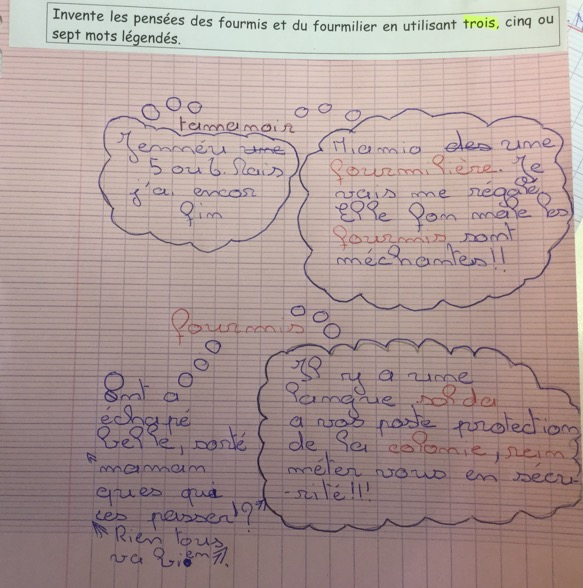 Invente les pensées des fourmis et du fourmilier en utilisant trois, cinq ou
sept mots légendés.
tamanoir
J'emméu une
5 ou 6. Mais
j'ai encor
fim
Miamia des une
fourmilière. Je
vais me régale
Elle fon male les
fourmis sont
méchantes!!
fourmis
Ont a
échapé
belle, sorté
"maman
ques qui
ces passer"?"
"Rien tous
va bien".
Il y a une
langue, solda
a vos poste protection
de la colonie, reine
méter vous en sécu-
-rité!!!